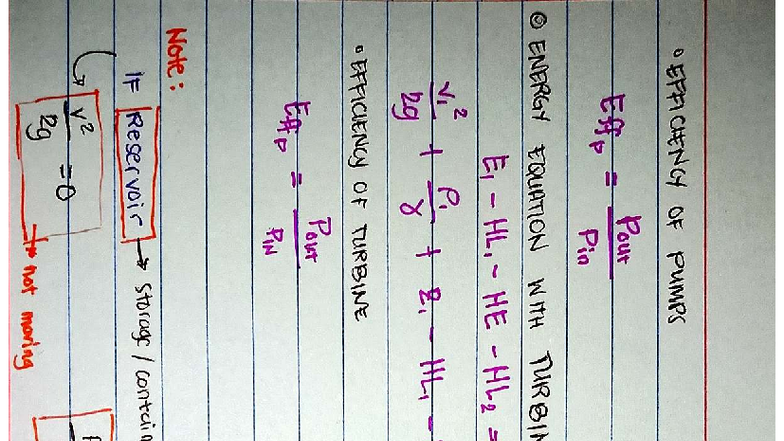 ° EFFICIENCY OF PUMPS
Effp = Pout / Pin
⊙ ENERGY EQUATION WITH TURBIN
E1 - HL1 - HE - HL2 =
V1² / 2g + P1 / γ + Z1 - HL1 -
° EFFICIENCY OF TURBINE
Effp = Pout / PIN
Note:
IF Reservoir → storage / contain
V² / 2g = 0 → not moving